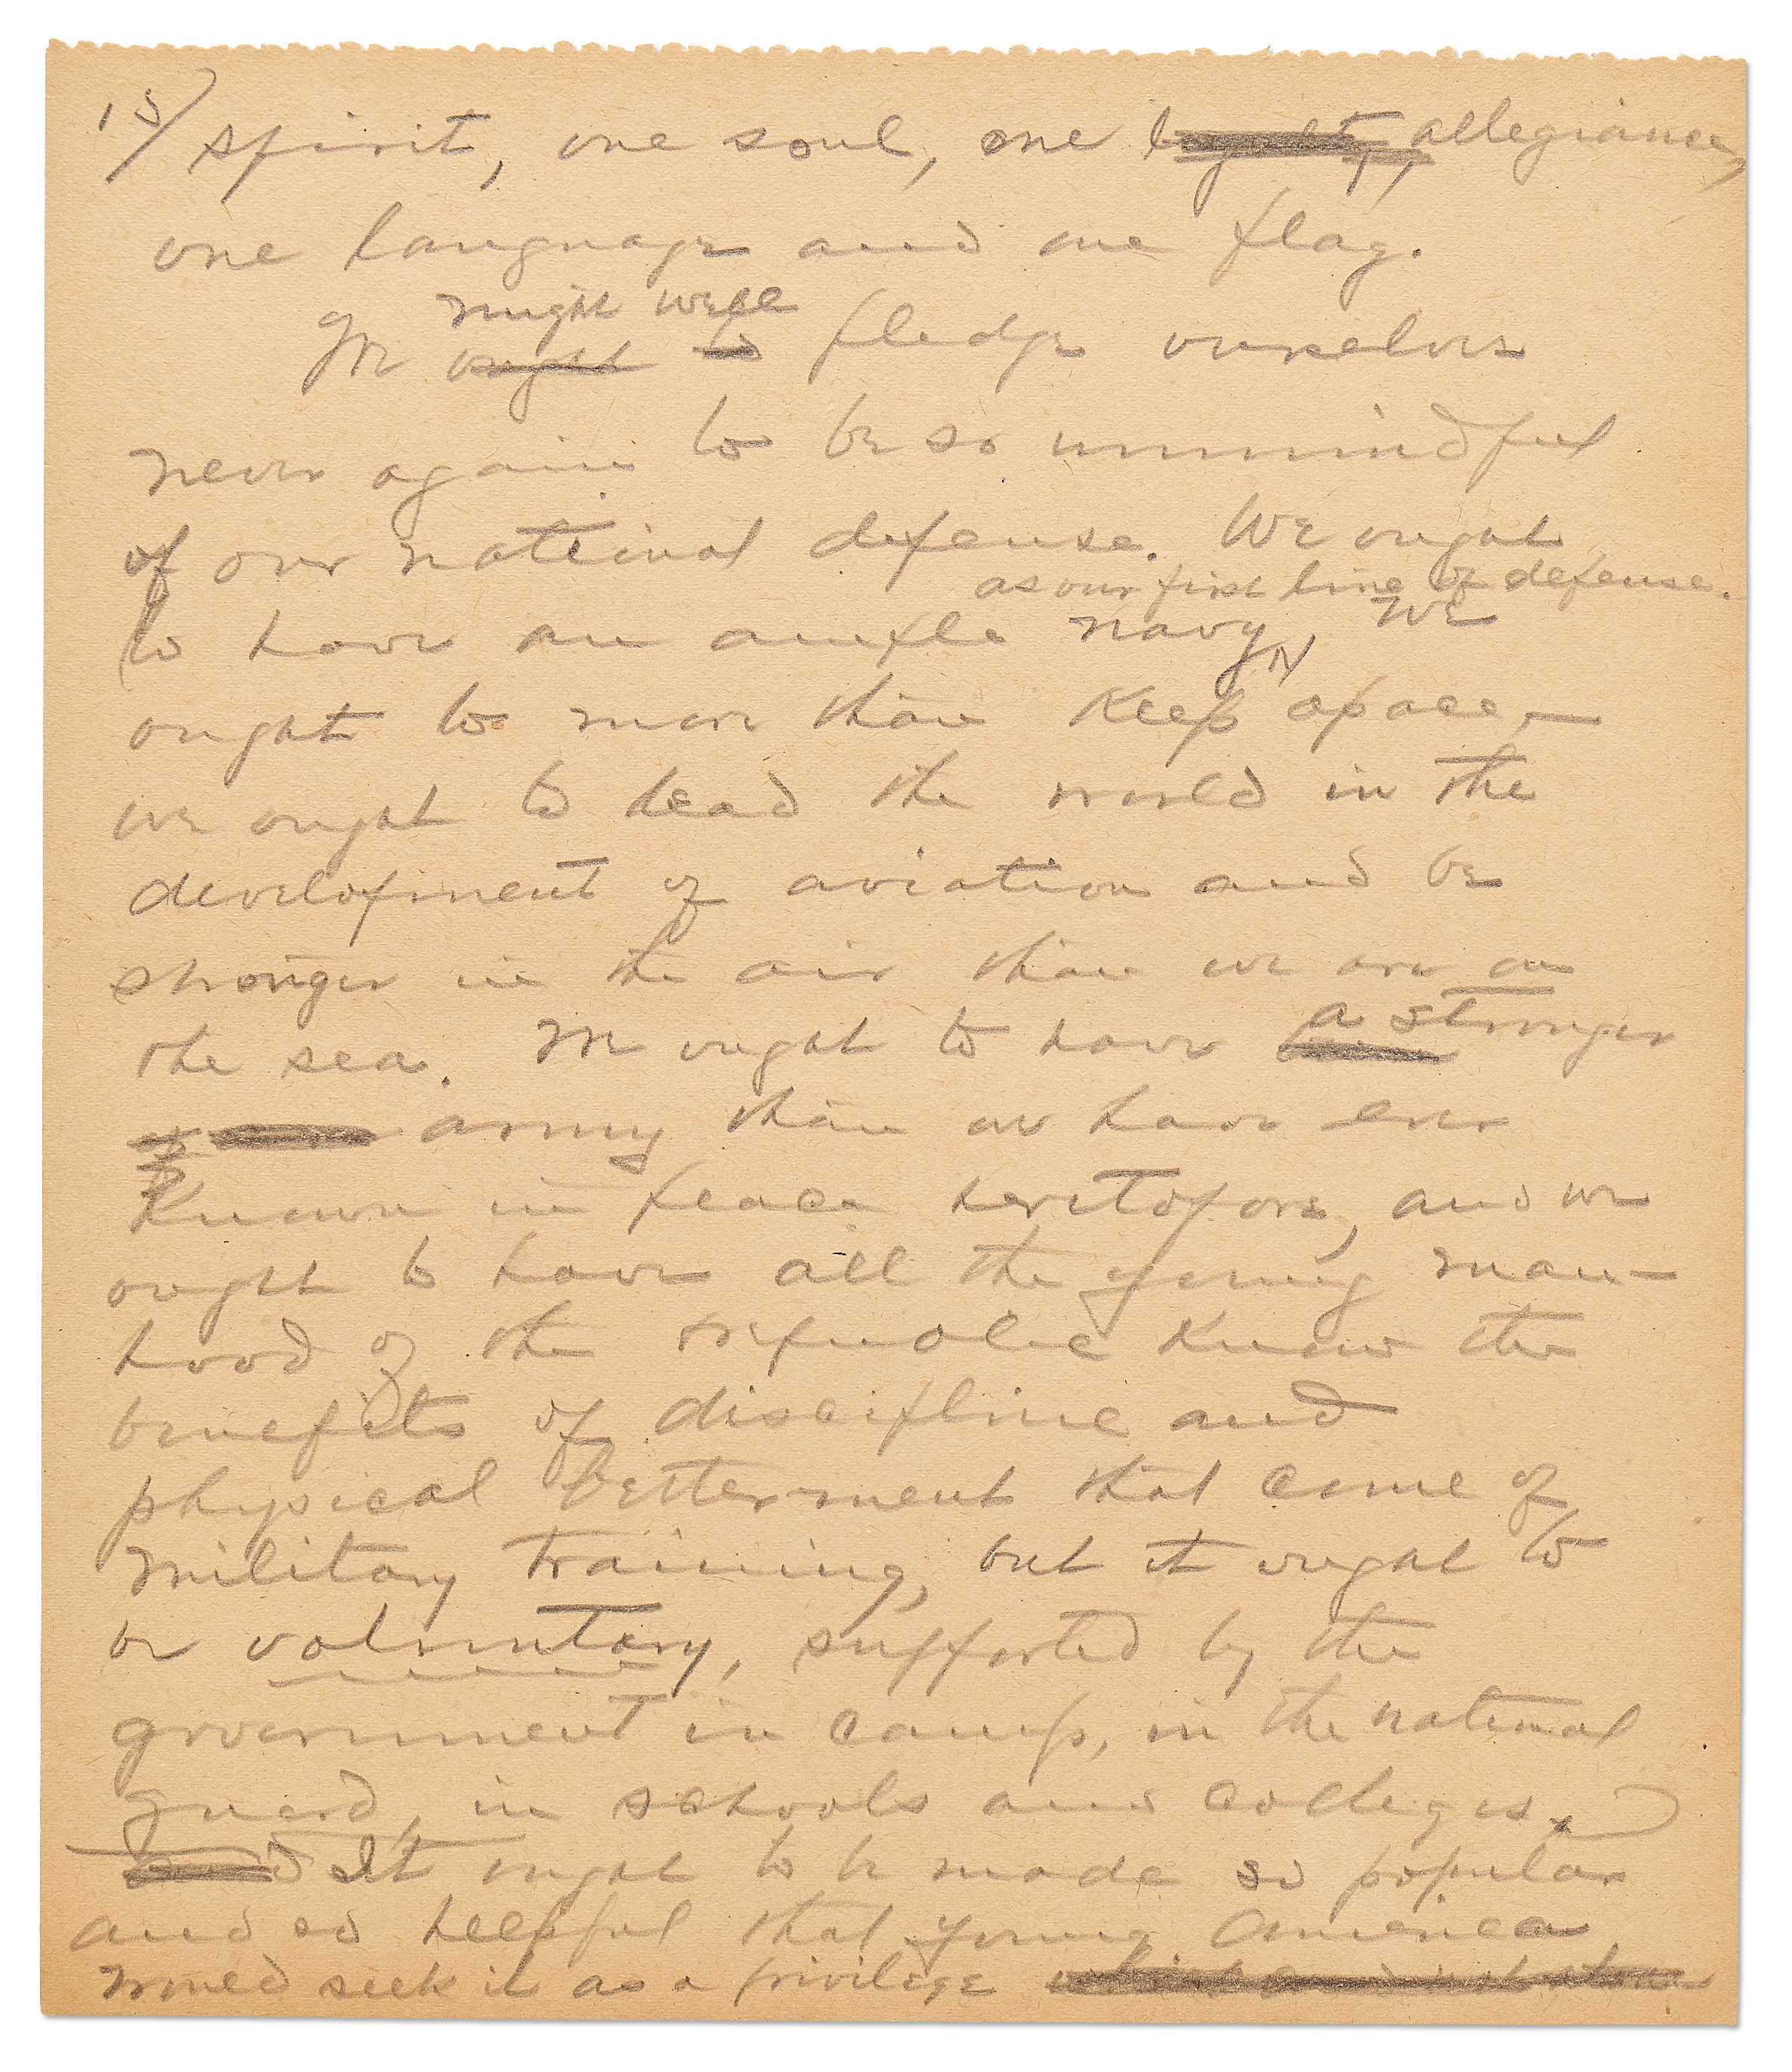 15/ spirit, one soul, one loyalty, allegiance,
one language and one flag.
might well
We ought to pledge ourselves
never again to be so unmindful
of our national defense. We ought
as our first line of defense.
to have an ample navy, We
ought to more than keep apace –
we ought to lead the world in the
development of aviation and be
stronger in the air than we are on
the sea. We ought to have a stronger
army than we have ever
known in peace heretofore, and we
ought to have all the young man-
hood of the republic know the
benefits of discipline and
physical betterment that come of
military training, but it ought to
be voluntary, supported by the
government in camp, in the national
guard, in schools and colleges.
and It ought to be made so popular
and so helpful that young America
would seek it as a privilege